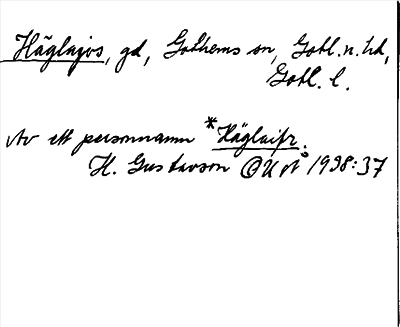 Häglajvs, gd, Gothems sn, Gotl. n. hd,
Gotl. l.
Av ett personnamn *Häglaifr.
H. Gustavson GUÅ 1938:37